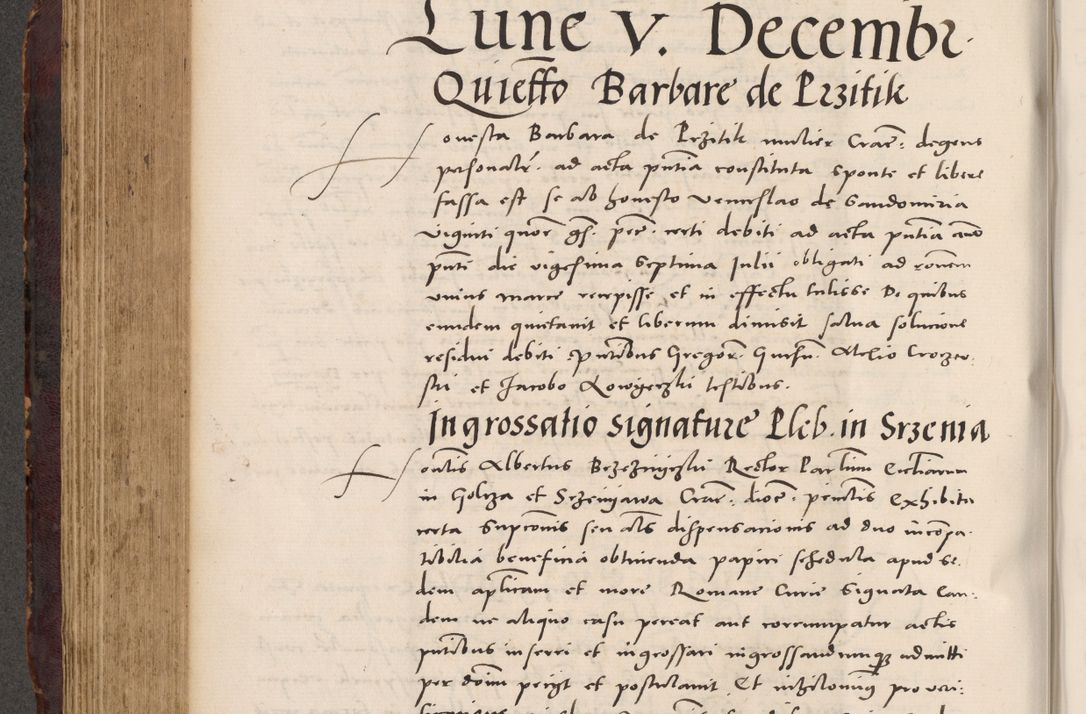 Lune v. Decembr.
Quietto Barbare de Przitik
Honesta Barbara de Przitik mulier Crac. degens
personalr. ad acta pntia constituta sponte et libere
fassa est se ab honesto Venceslao de Sandomiria
viginti quor gs. pec. certi debiti ad acta pntia anno
pnti die vigesima septima Julii obligati ad ronem
unius marce recepisse et in effectu tulisse De quibus
eundem quietavit et liberum dimisit salva solucione
residui debiti pntibus Gregor. Alelio
ski et Jacobo testibus.
Ingrossatio signature Pleb. in Srzenia
Honlis Albertus Rector Parlium Eccliarum
in Golcza et Srzeniawa Crac. dioc. penclis Exhibita
certa supconis seu als dispensacionis ad duo incompa-
tibilia beneficia obtinenda papiri schedula apud se-
dem aplicam et more Romane Curie signata Can-
dem ne aliquo casu pereat aut corrumpatur actis
pntibus inseri et ingrossari ingrossandumque admitti
per dom petyt et postulavit. Et nihilominus pro veri-